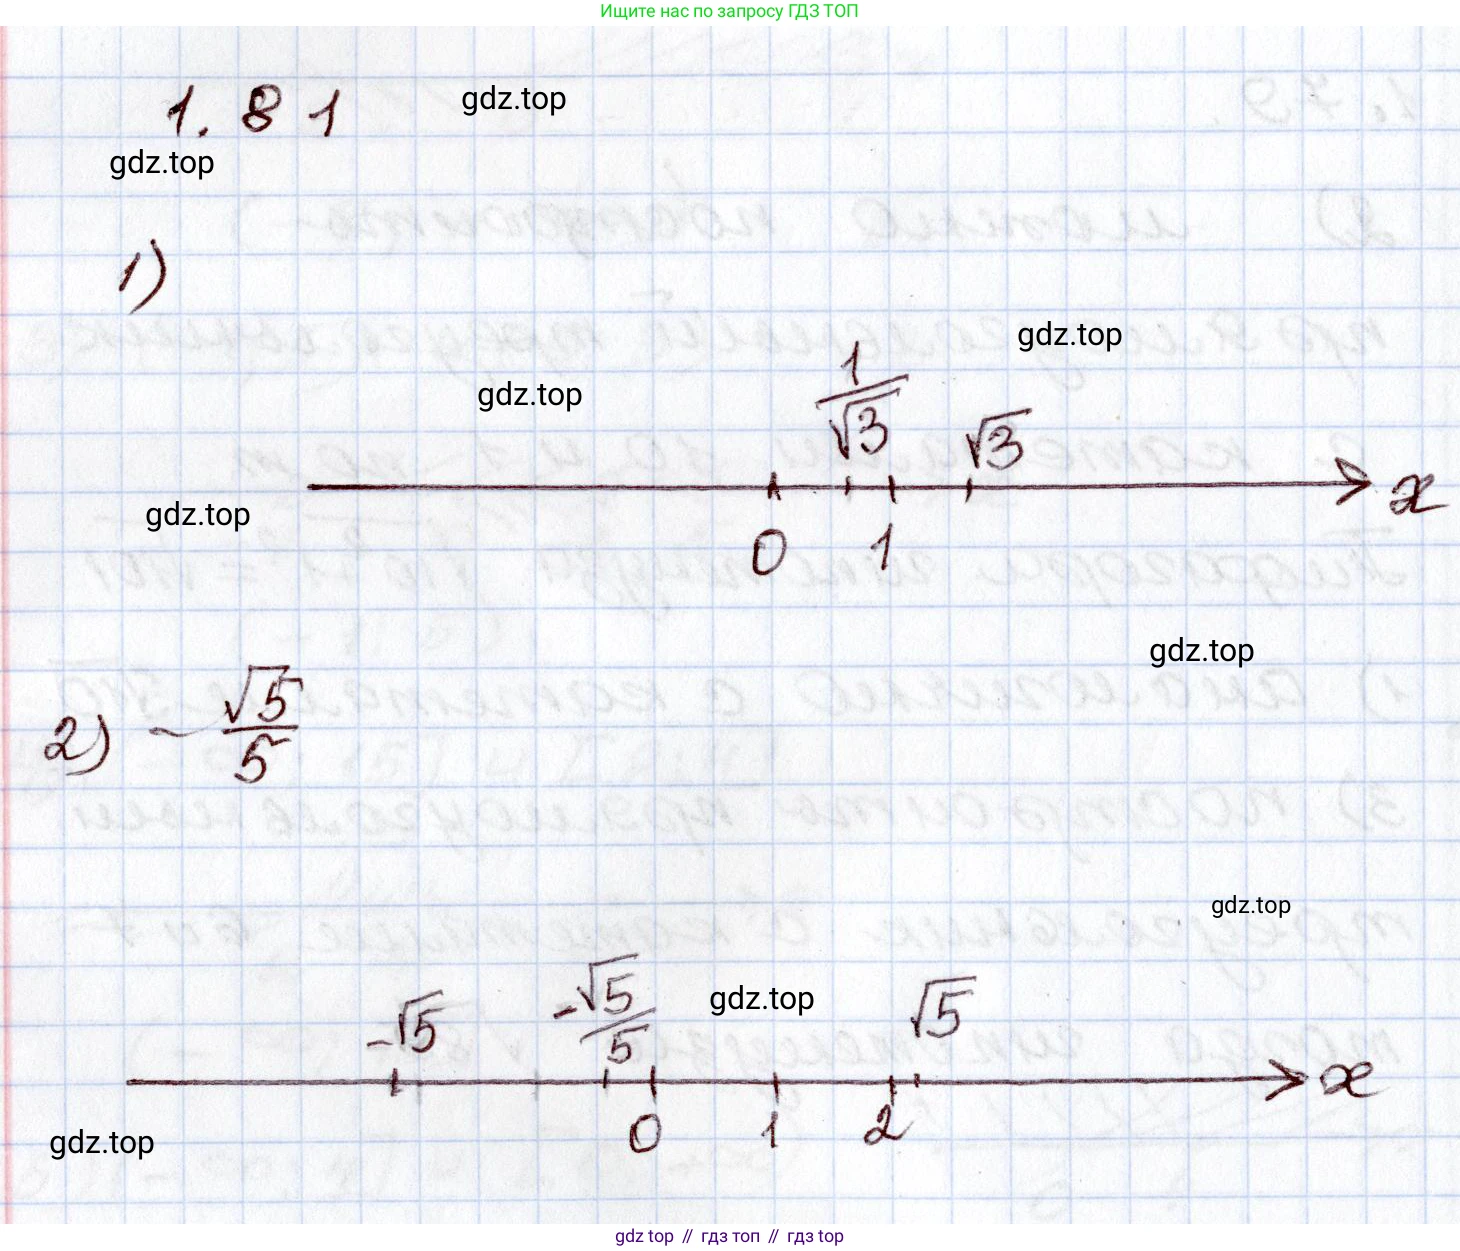 Ищите нас по запросу ГДЗ ТОП
1.81
gdz.top
gdz.top
1)
gdz.top
gdz.top
1/√3
√3
gdz.top
x
0 1
gdz.top
2) -√5/5
gdz.top
-√5 -√5/5 gdz.top √5
x
0 1 2
gdz.top
gdz top // гдз топ // гдз top